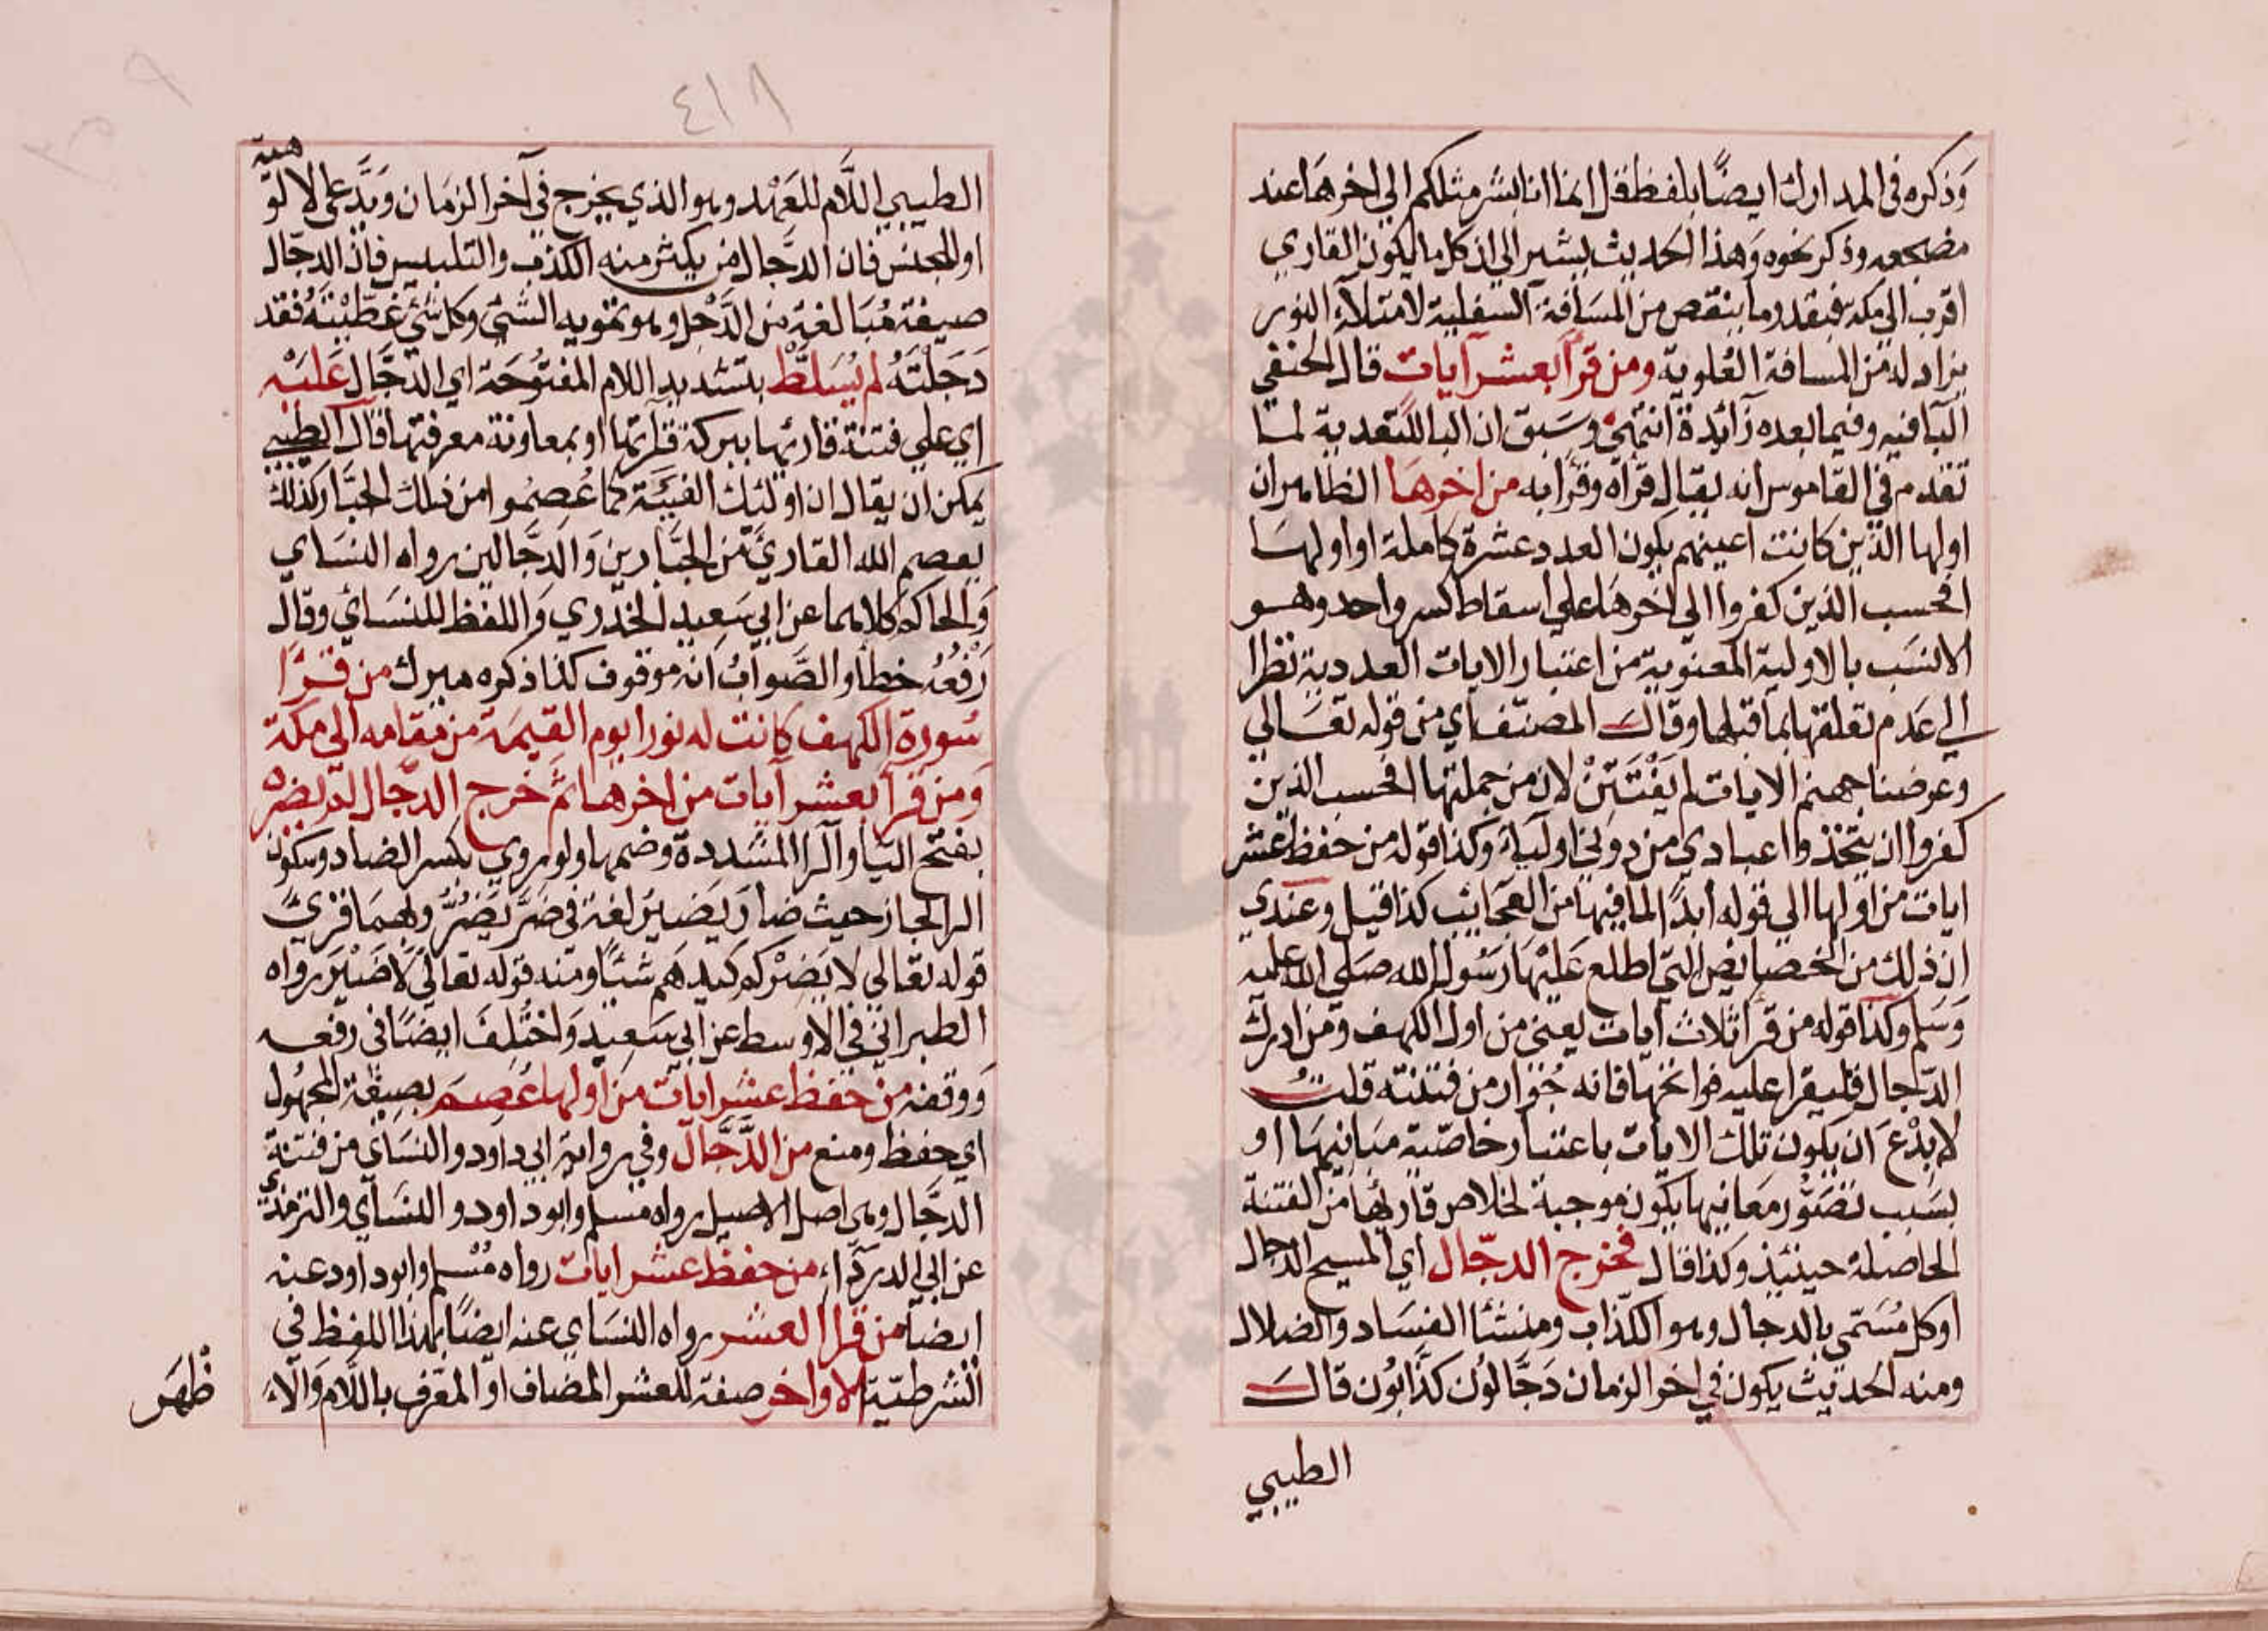 وذكره في المدارك ايضا بلفظ قل انما انا بشر مثلكم الي اخرها عند
مضجعه وذكر نحوه وهذا الحديث يشير الي ان كل ما يكون القاري
اقرب الي مكة فبقدر ما ينقص من المسافة السفلية لامتلاء النور
يزاد له من المسافة العلوية ومن قرأ بعشر آيات قال الحنفي
البا فيه وفيما بعده زائدة انتهي وسبق ان البا للتعدية لما
تقدم في القاموس انه يقال قرأه وقرأ به من اخرها الظاهر ان
اولها الذين كانت اعينهم يكون العدد عشرة كاملة او اولها
افحسب الذين كفروا الي اخرها علي اسقاط كسر واحد وهو
الانسب بالاولية المعنوية من اعتبار الايات العددية نظرا
الي عدم تعلقها بما قبلها وقال المصنف اي من قوله تعالي
وعرضنا جهنم الايات لم يفتتن لان من جملتها افحسب الذين
كفروا ان يتخذوا عبادي من دوني اولياء وكذا قوله من حفظ عشر
ايات من اولها الي قوله أبدا لما فيها من العجائب كذا قيل وعندي
ان ذلك من الخصائص التي اطلع عليها رسول الله صلي الله عليه
وسلم وكذا قوله من قرأ ثلاث آيات يعني من اول الكهف ومن ادرك
الدجال فليقرا عليه فواتحها فانه جوار من فتنته قلت
لا بدع ان يكون تلك الايات باعتبار خاصية مبانيها او
بسبب تصور معانيها يكون موجبة لخلاص قارئها من الفتنة
الحاصلة حينئذ وكذا قال فخرج الدجال أي المسيح الدجال
اوكل مسمي بالدجال وهو الكذاب ومنشئا الفساد والضلال
ومنه الحديث يكون في اخر الزمان دجالون كذابون قال
الطيبي
٤١٨
الطيبي اللام للعهد وهو الذي يخرج في آخر الزمان ويدعي الالوهية
او للجنس فان الدجال من يكثر منه الكذب والتلبيس فان الدجال
صيغة مبالغة من الدجل وهو تمويه الشئ وكل شئ غطيته فقد
دجلته لم يسلط بتشديد اللام المفتوحة اي الدجال عليه
اي علي فتنة قارئها ببركة قراءتها او بمعاونة معرفتها قال الطيبي
يمكن ان يقال ان اولئك الفتية كما عصموا من ذلك الجبار كذلك
يعصم الله القارئ من الجبارين والدجالين رواه النساي
والحاكم كلاهما عن ابي سعيد الخدري واللفظ للنسائي وقال
رفعه خطأ والصواب انه موقوف كذا ذكره ميرك من قرأ
سورة الكهف كانت له نورا يوم القيمة من مقامه الي مكة
ومن قرأ بعشر آيات من اخرها ثم خرج الدجال لم يضره
بفتح اليا والرا المشددة وضمها ولو روي بكسر الضاد وسكون
الرا لجاز حيث ضار يضير لغة في ضر يضر وبهما قرئ
قوله تعالي لا يضركم كيدهم شيئا ومنه قوله تعالي لا ضير رواه
الطبراني في الاوسط عن ابي سعيد واختلف ايضا في رفعه
ووقفه من حفظ عشر ايات من اولها عصم بصيغة المجهول
اي حفظ ومنع من الدجال وفي رواية ابي داود والنساي من فتنة
الدجال وهي اصل الاصيل رواه مسلم وابو داود والنساي والترمذي
عن ابي الدرداء من حفظ عشر ايات رواه مسلم وابو داود عنه
ايضا من قرأ العشر رواه النساي عنه ايضا بهذا اللفظ في
الشرطية الاواخر صفة للعشر المضاف او المعرف باللام والاء
ظهر